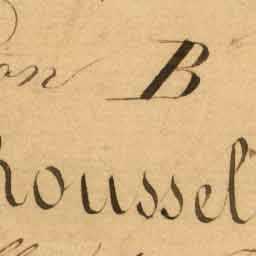 on B
Roussel